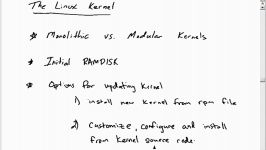 The Linux Kernel
* Monolithic vs. Modular Kernels
* Initial RAMDISK
* Options for updating Kernel
1) install new Kernel from rpm file
2) Customize, configure and install
from Kernel source code.